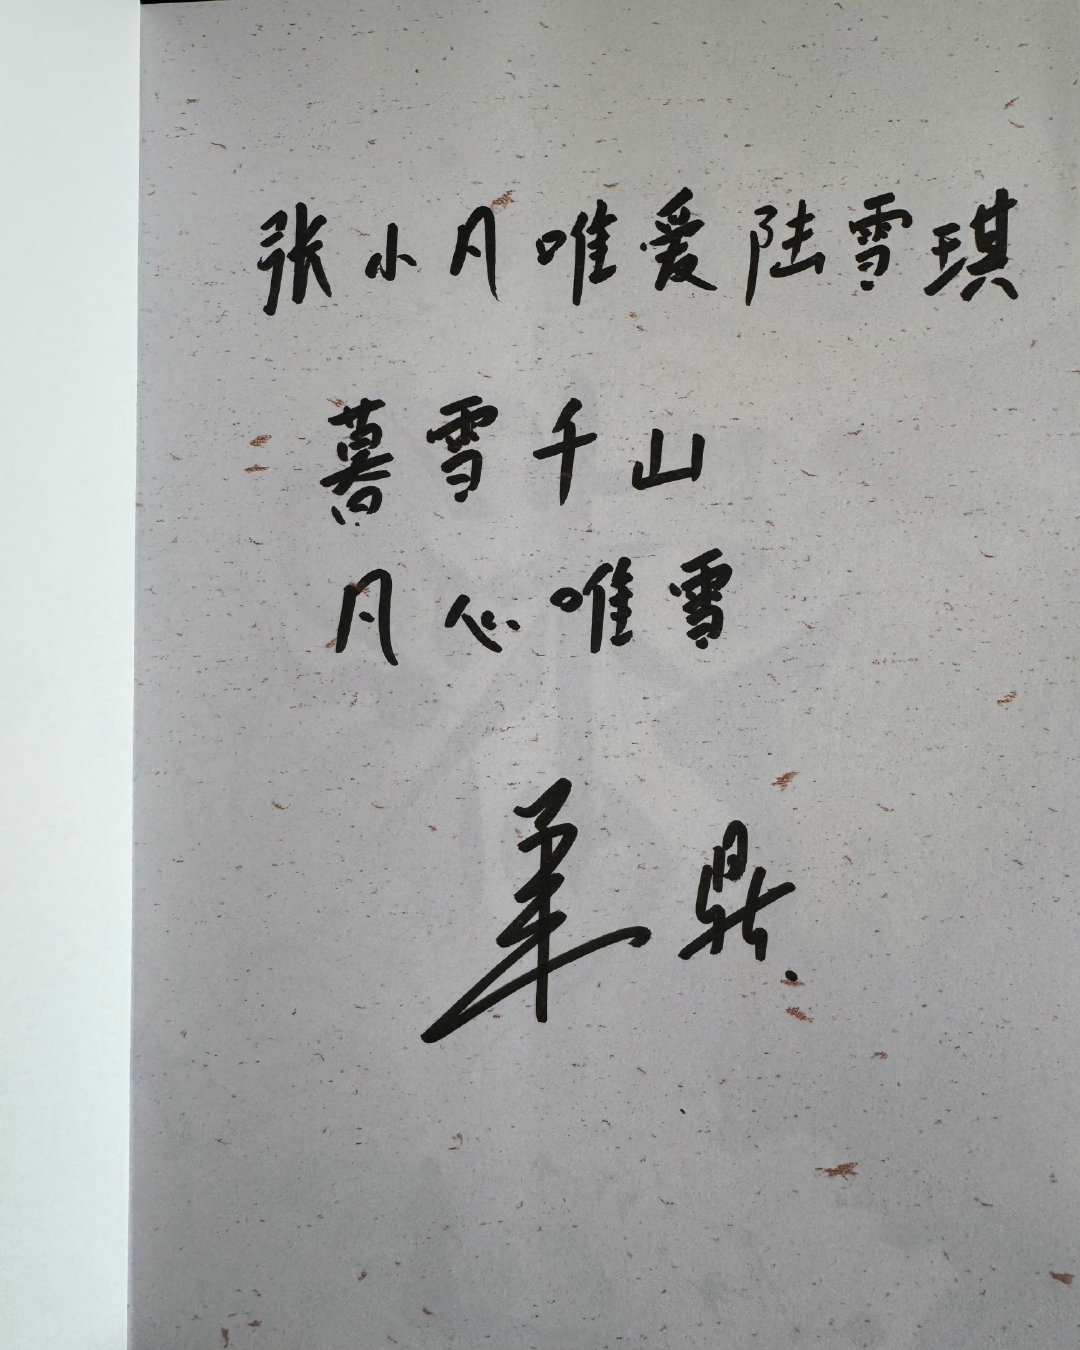 张小凡唯爱陆雪琪
暮雪千山
凡心唯雪
萧鼎